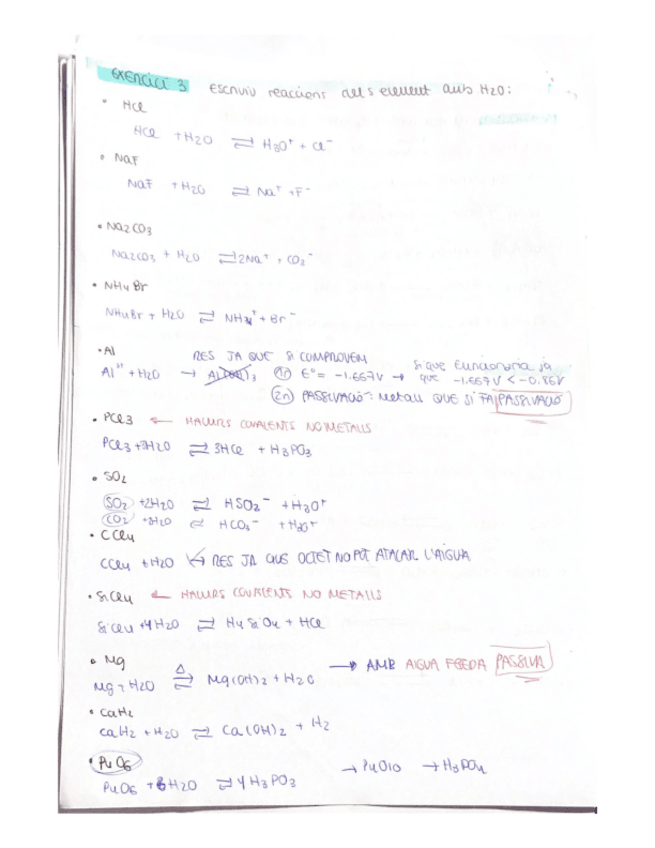 EXERCICI 3 ESCRIVIU reaccions dels element amb H2O:
• HCl
HCl + H2O ⇌ H3O+ + Cl-
• NaF
NaF + H2O ⇌ Na+ + F-
• Na2CO3
Na2CO3 + H2O ⇌ 2Na+ + CO3-
• NH4Br
NH4Br + H2O ⇌ NH4+ + Br-
• Al RES JA QUE SI COMPROVEM
Al3+ + H2O → 1r E° = -1.667V → si que funcionaria ja que -1.667V < -0.86V
2n PASSIVACIÓ: Metall QUE SI FA PASSIVACIÓ
• PCl3 ← HALURS COVALENTS NO METALLS
PCl3 + 3H2O ⇌ 3HCl + H3PO3
• SO2
SO2 + 2H2O ⇌ HSO2- + H3O+
CO2 + H2O ⇌ HCO3- + H3O+
• CCl4
CCl4 + H2O RES JA QUE OCTET NO POT ATACAR L'AIGUA
• SiCl4 ← HALURS COVALENTS NO METALLS
SiCl4 + 4H2O ⇌ H4SiO4 + HCl
• Mg → AMB AIGUA FREDA PASSIVA
Mg + H2O Δ ⇌ Mg(OH)2 + H2O
• CaH2
CaH2 + H2O ⇌ Ca(OH)2 + H2
• P4O6 → P4O10 → H3PO4
P4O6 + 6H2O ⇌ 4H3PO3